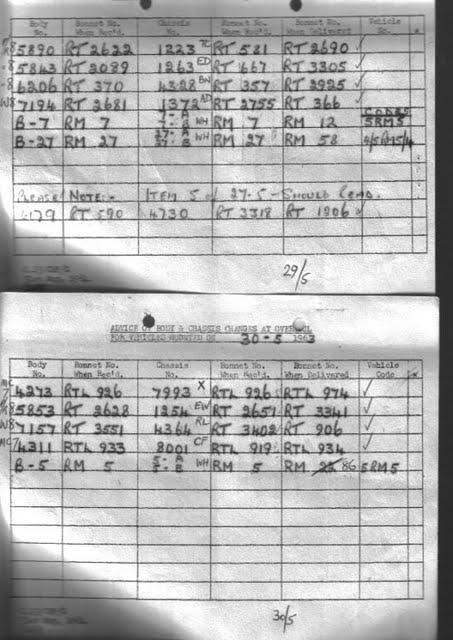 Body No. Bonnet No. When Rec'd. Chassis No. Bonnet No. When Rec'd. Bonnet No. When Delivered Vehicle No.
8 5890 RT 2622 1223 TC RT 581 RT 2690 ✓
8 5843 RT 2089 1263 ED RT 1667 RT 3305 ✓
8 6206 RT 370 4328 BN RT 357 RT 2925 ✓
W8 7194 RT 2681 1372 AD RT 2755 RT 366 ✓
CODES
B-7 RM 7 7-A 7-B WH RM 7 RM 12 5RM5
B-27 RM 27 27-A 27-B WH RM 27 RM 58 4/5RM5/4
PLEASE NOTE:- ITEM 5 of 27-5- SHOULD READ.
RT 590 4730 RT 3318 RT 1206 ✓
29/5
ADVICE OF BODY & CHASSIS CHANGES AT OVERHAUL
FOR VEHICLES MOUNTED ON 30-5 1963
Body No. Bonnet No. When Rec'd. Chassis No. Bonnet No. When Rec'd. Bonnet No. When Delivered Vehicle Code
4273 RTL 926 7993 X RTL 926 RTL 974 ✓
8 5853 RT 2628 1254 EW RT 2651 RT 3341 ✓
W8 7157 RT 3551 4364 RL RT 3402 RT 906 ✓
MC7 4311 RTL 933 8001 CF RTL 919 RTL 934 ✓
B-5 RM 5 5-A 5-B WH RM 5 RM 86 5RM5
30/5